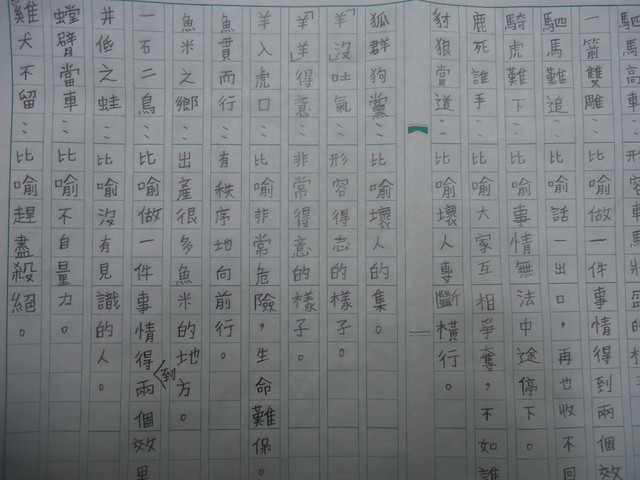 駟馬高車：形容車馬壯盛的
一箭雙雕：比喻做一件事情得到兩個效
駟馬難追：比喻話一出口，再也收不回
騎虎難下：比喻事情無法中途停下。
鹿死誰手：比喻大家互相爭奪，不如誰
豺狼當道：比喻壞人專斷橫行。
狐群狗黨：比喻壞人的集。
「羊」沒吐氣：形容得志的樣子。
「羊」「羊」得意：非常得意的樣子。
羊入虎口：比喻非常危險，生命難保。
魚貫而行：有秩序地向前行。
魚米之鄉：出產很多魚米的地方。
一石二鳥：比喻做一件事情得到兩個效果
井低之蛙：比喻沒有見識的人。
螳臂當車：比喻不自量力。
雞犬不留：比喻趕盡殺絕。